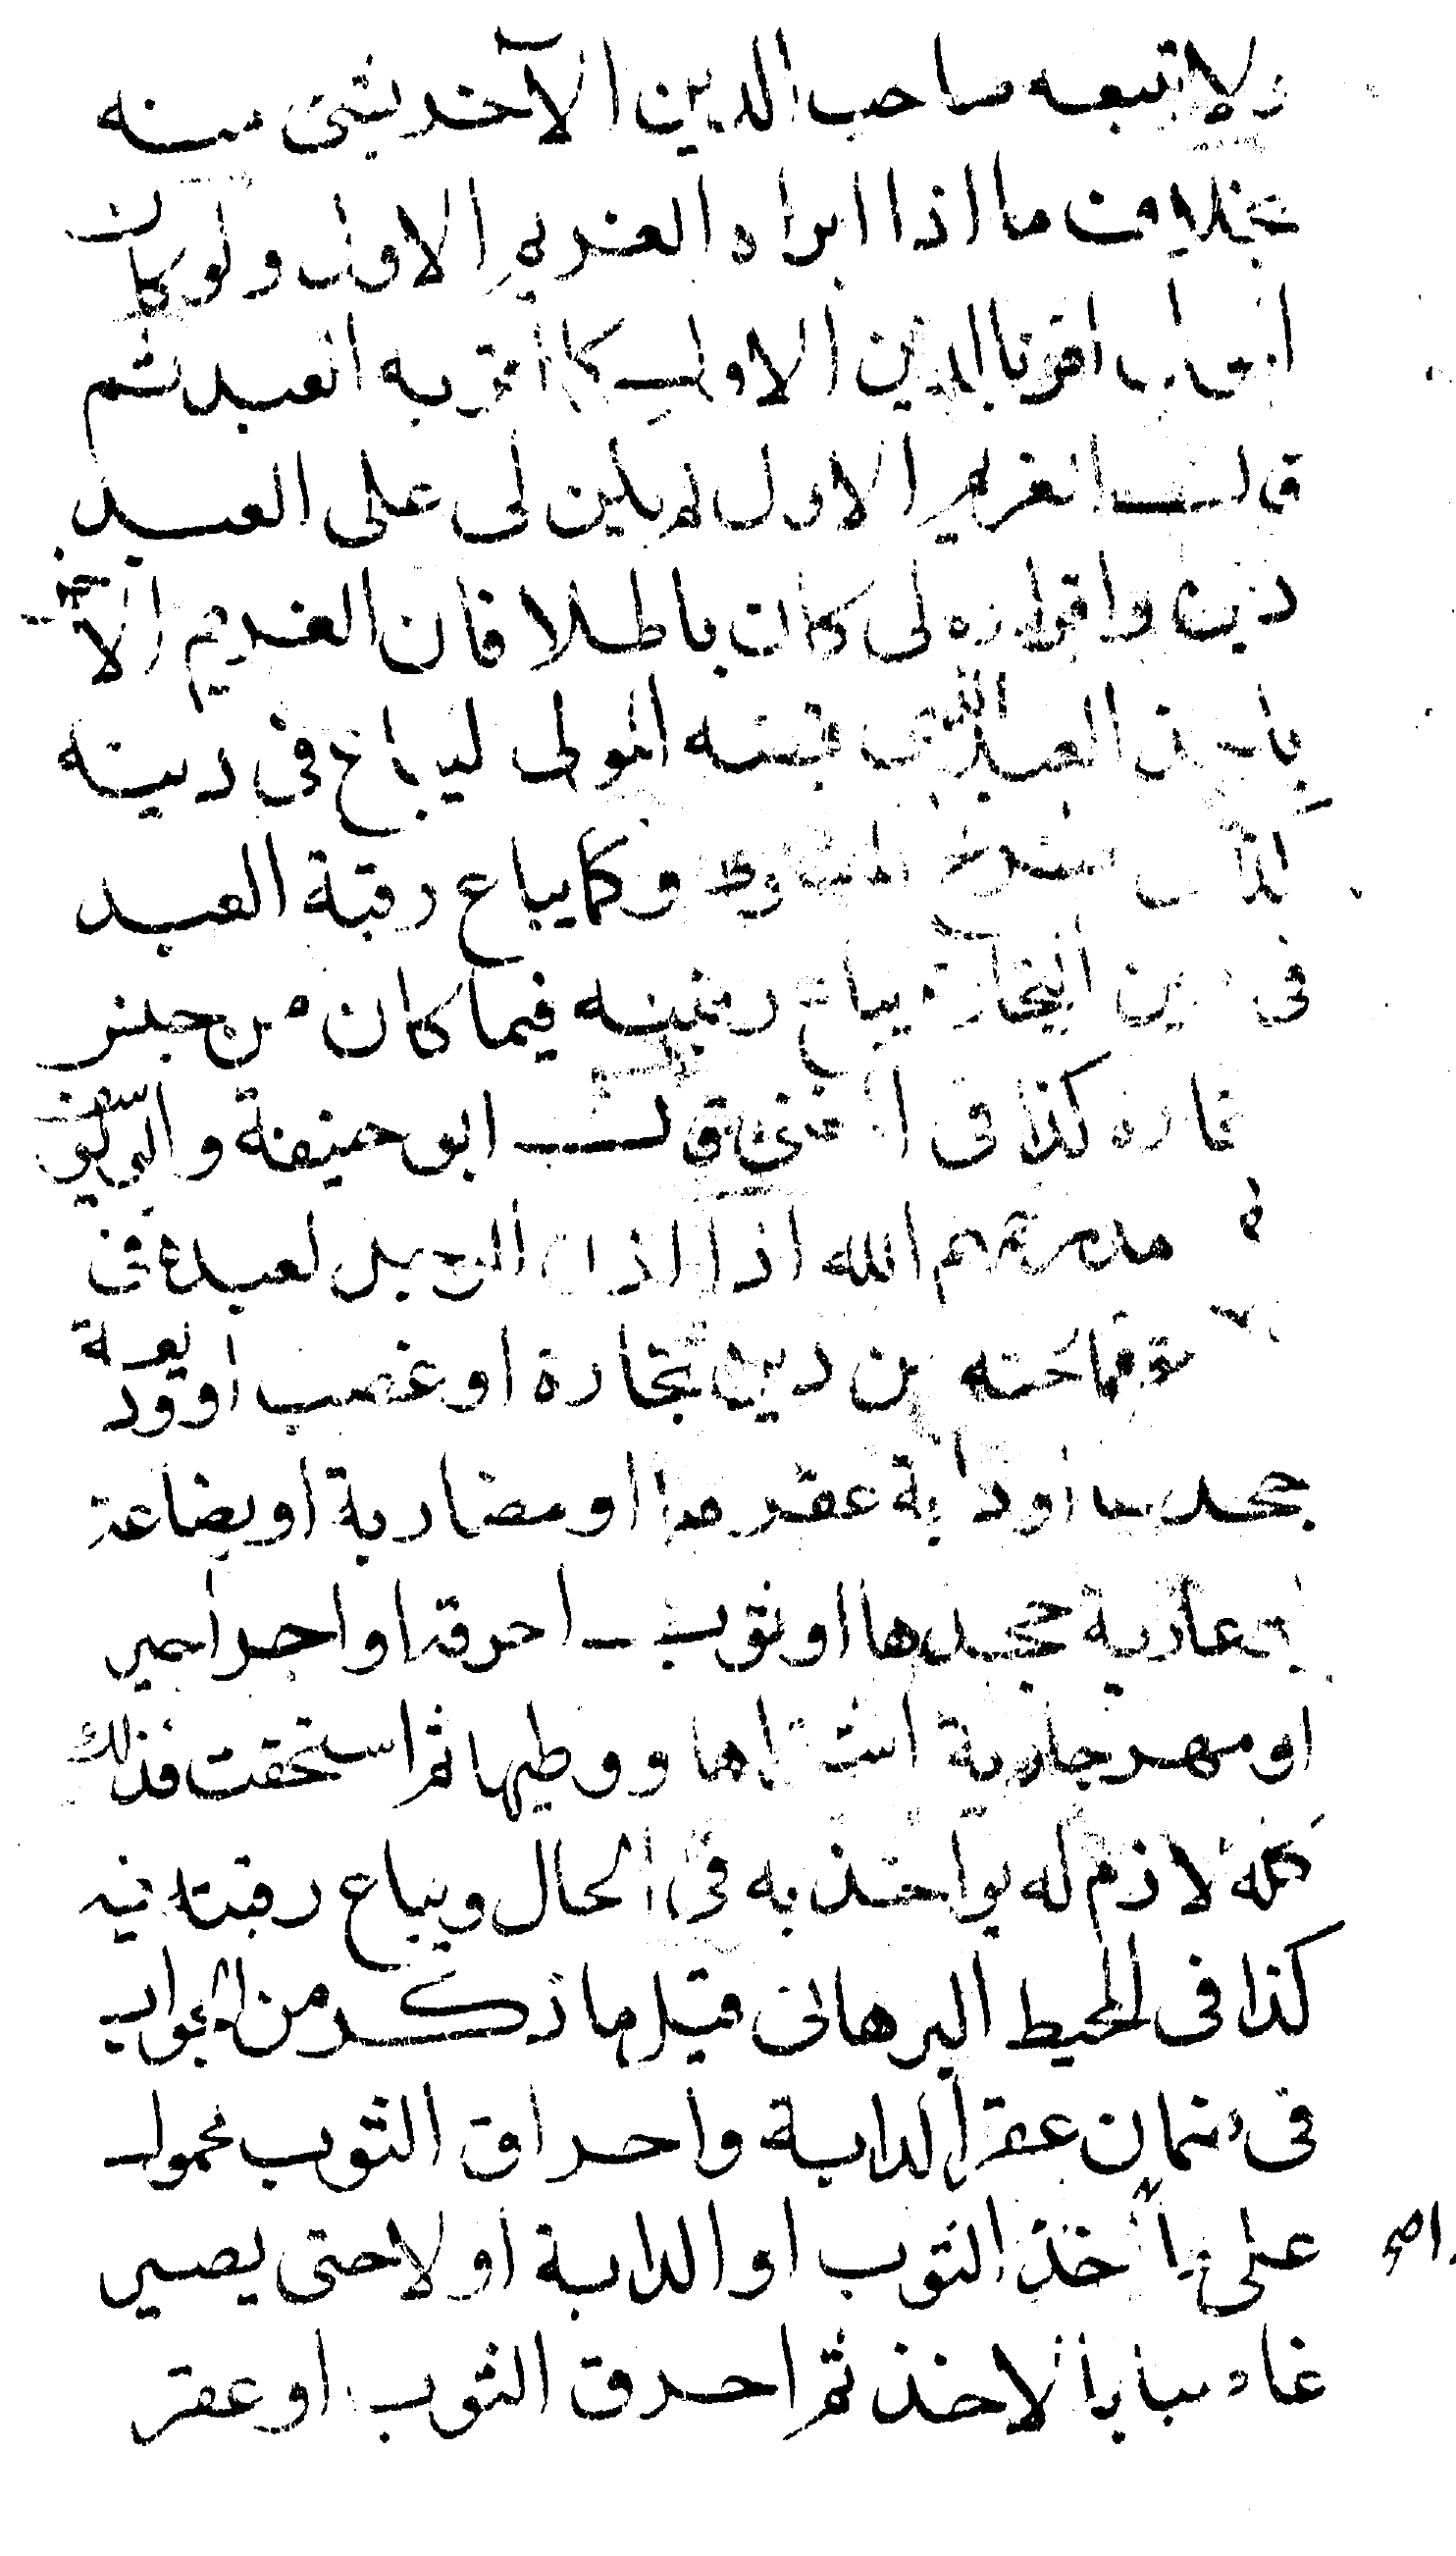 ولا تبعه صاحب الدين الآخر بشئ منه
بخلاف ما اذا ابراه الغريم الاول ولو كان
المولى اقر بالدين الاول كما اقر به العبد ثم
قال الغريم الاول لم يكن لى على العبد
دين واقراره لى كان باطلا فان الغريم الآخر
ياخذ العبد الذى قبضه المولى ليباع فى دينه
كذا فى شرح الطحاوى وكما يباع رقبة العبد
فى دين التجارة يباع رقبته فيما كان من جنس
تجاره كذا فى المغنى قال ابو حنيفة وابو يوسف
و محمد رحمهم الله اذا اذن الرجل لعبده فى
لحقه من دين تجارة او غصب او وديعة
جحدها او دابة عقرها او مضاربة او بضاعة
او عارية جحدها او ثوب احرقه او اجر اجير
او مهر جارية اشتراها ووطيها ثم استحقت فذلك
كله لازم له يواخذ به فى الحال ويباع رقبته فيه
كذا فى المحيط البرهانى قيل ما ذكر من الجواب
فى ضمان عقر الدابة واحراق الثوب محمول
على ما أخذ الثوب او الدابة اولا حتى يصير
غاصبا بالاخذ ثم احرق الثوب او عقر